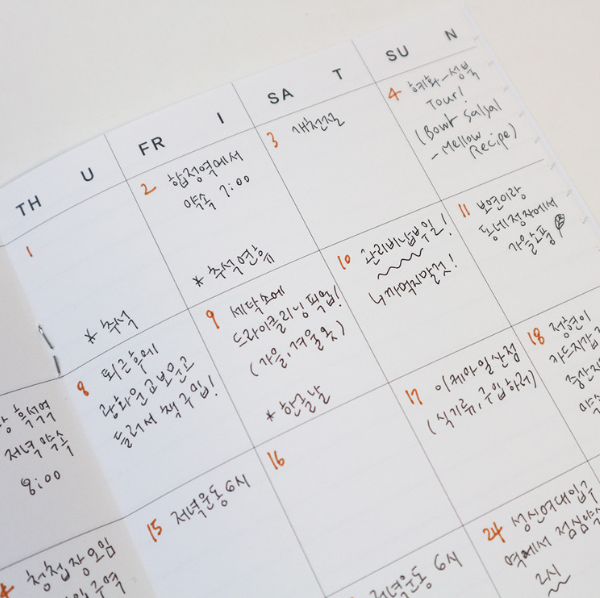 TH U FR I SA T SU N
1
* 추석
2 합정역에서
약속 7:00
* 추석연휴
3 개천절
4 혜화-성북
Tour!
(Bowl Salsal
-Mellow
Recipe)
저녁약속
8:00
8 퇴근후에
광화문교보문고
들러서 책구입!
9 세탁소에
드라이클리닝 픽업!
(가을,겨울옷)
* 한글날
10 관리비납부일!
까먹지말것!
11 보연이랑
동네정자에서
가을소풍
15 저녁운동 6시
16
17 이케아일산점
(식기류, 수입하러)
18
청첩장모임
저녁운동 6시
24 성신여대입구
역에서 점심약속
2시